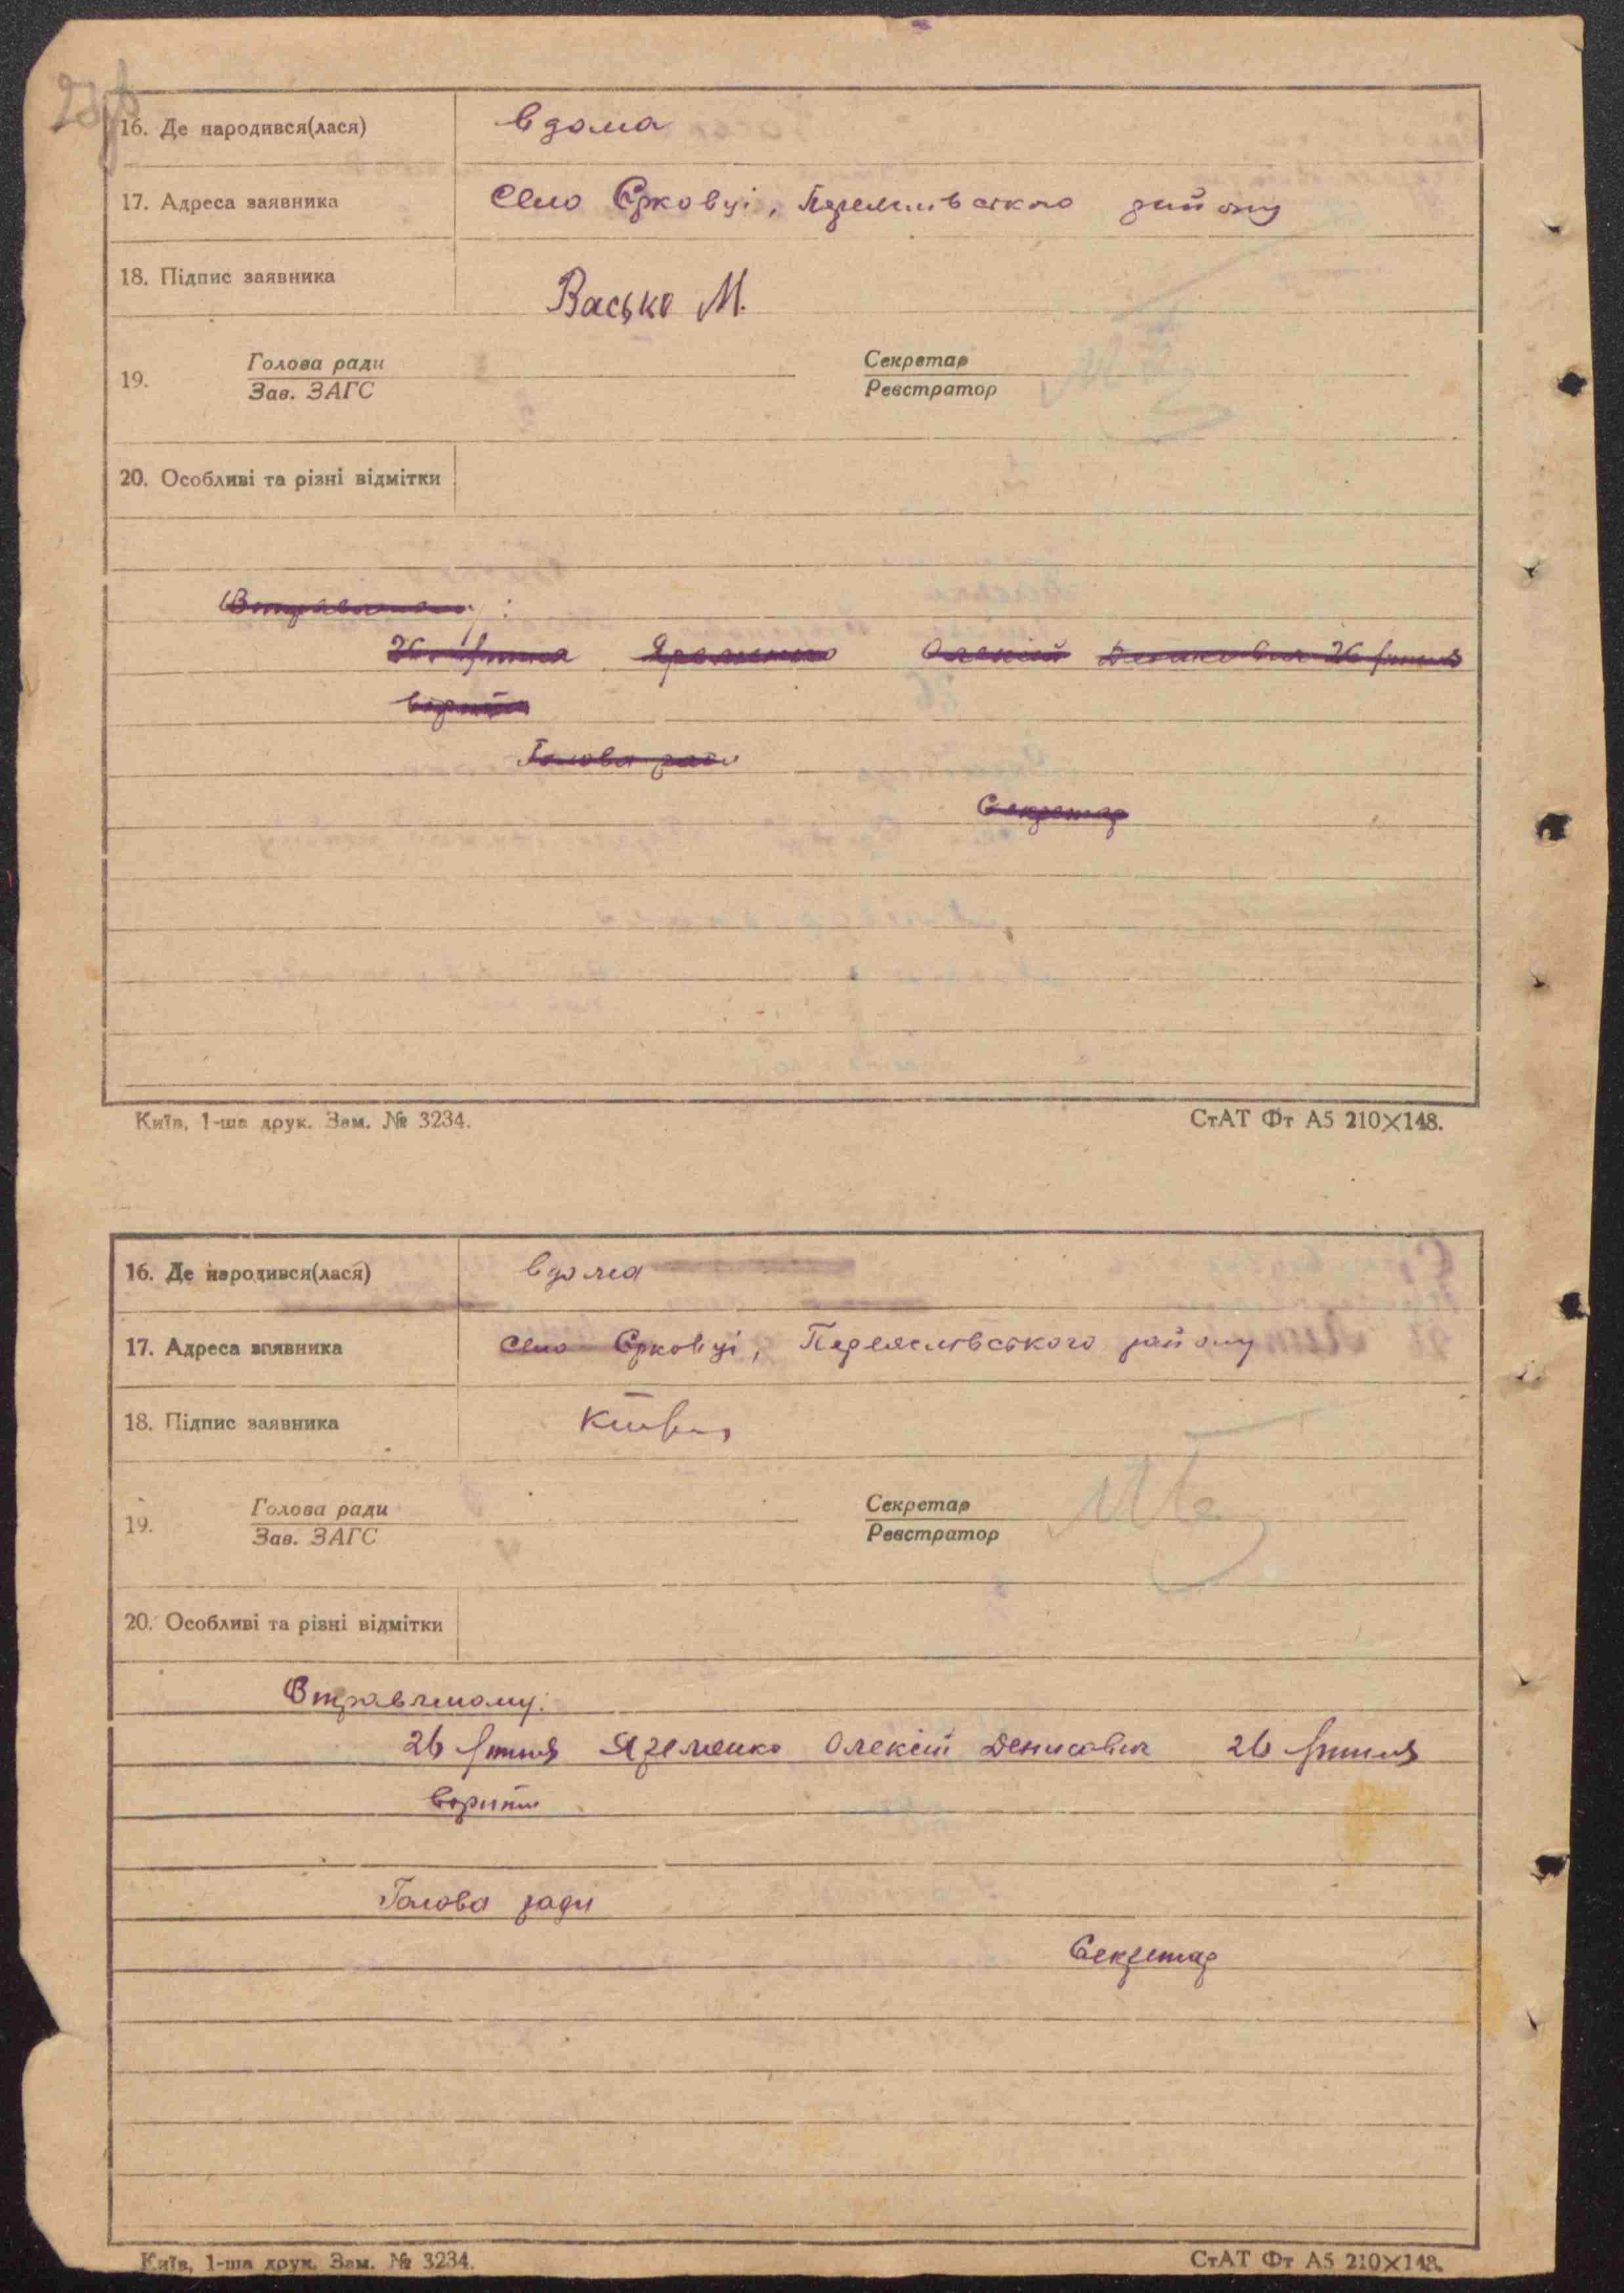 16. Де народився(лася) вдома
17. Адреса заявника Село Єрковці, Переяслівського району
18. Підпис заявника Васько М.
19. Голова ради Секретар
Зав. ЗАГС Реєстратор
20. Особливі та різні відмітки
Олексій Денисович 26
вірити
Голова ради
Секретар
Київ, 1-ша друк. Зам. № 3234. СтАТ Фт А5 210×148.
16. Де народився(лася) вдома
17. Адреса заявника село Єрковці, Переяслівського району
18. Підпис заявника
19. Голова ради Секретар
Зав. ЗАГС Реєстратор
20. Особливі та різні відмітки
Втравленому:
26 Яременко Олексій Денисович 26
вірити
Голова ради
Секретар
Київ, 1-ша друк. Зам. № 3234. СтАТ Фт А5 210×148.